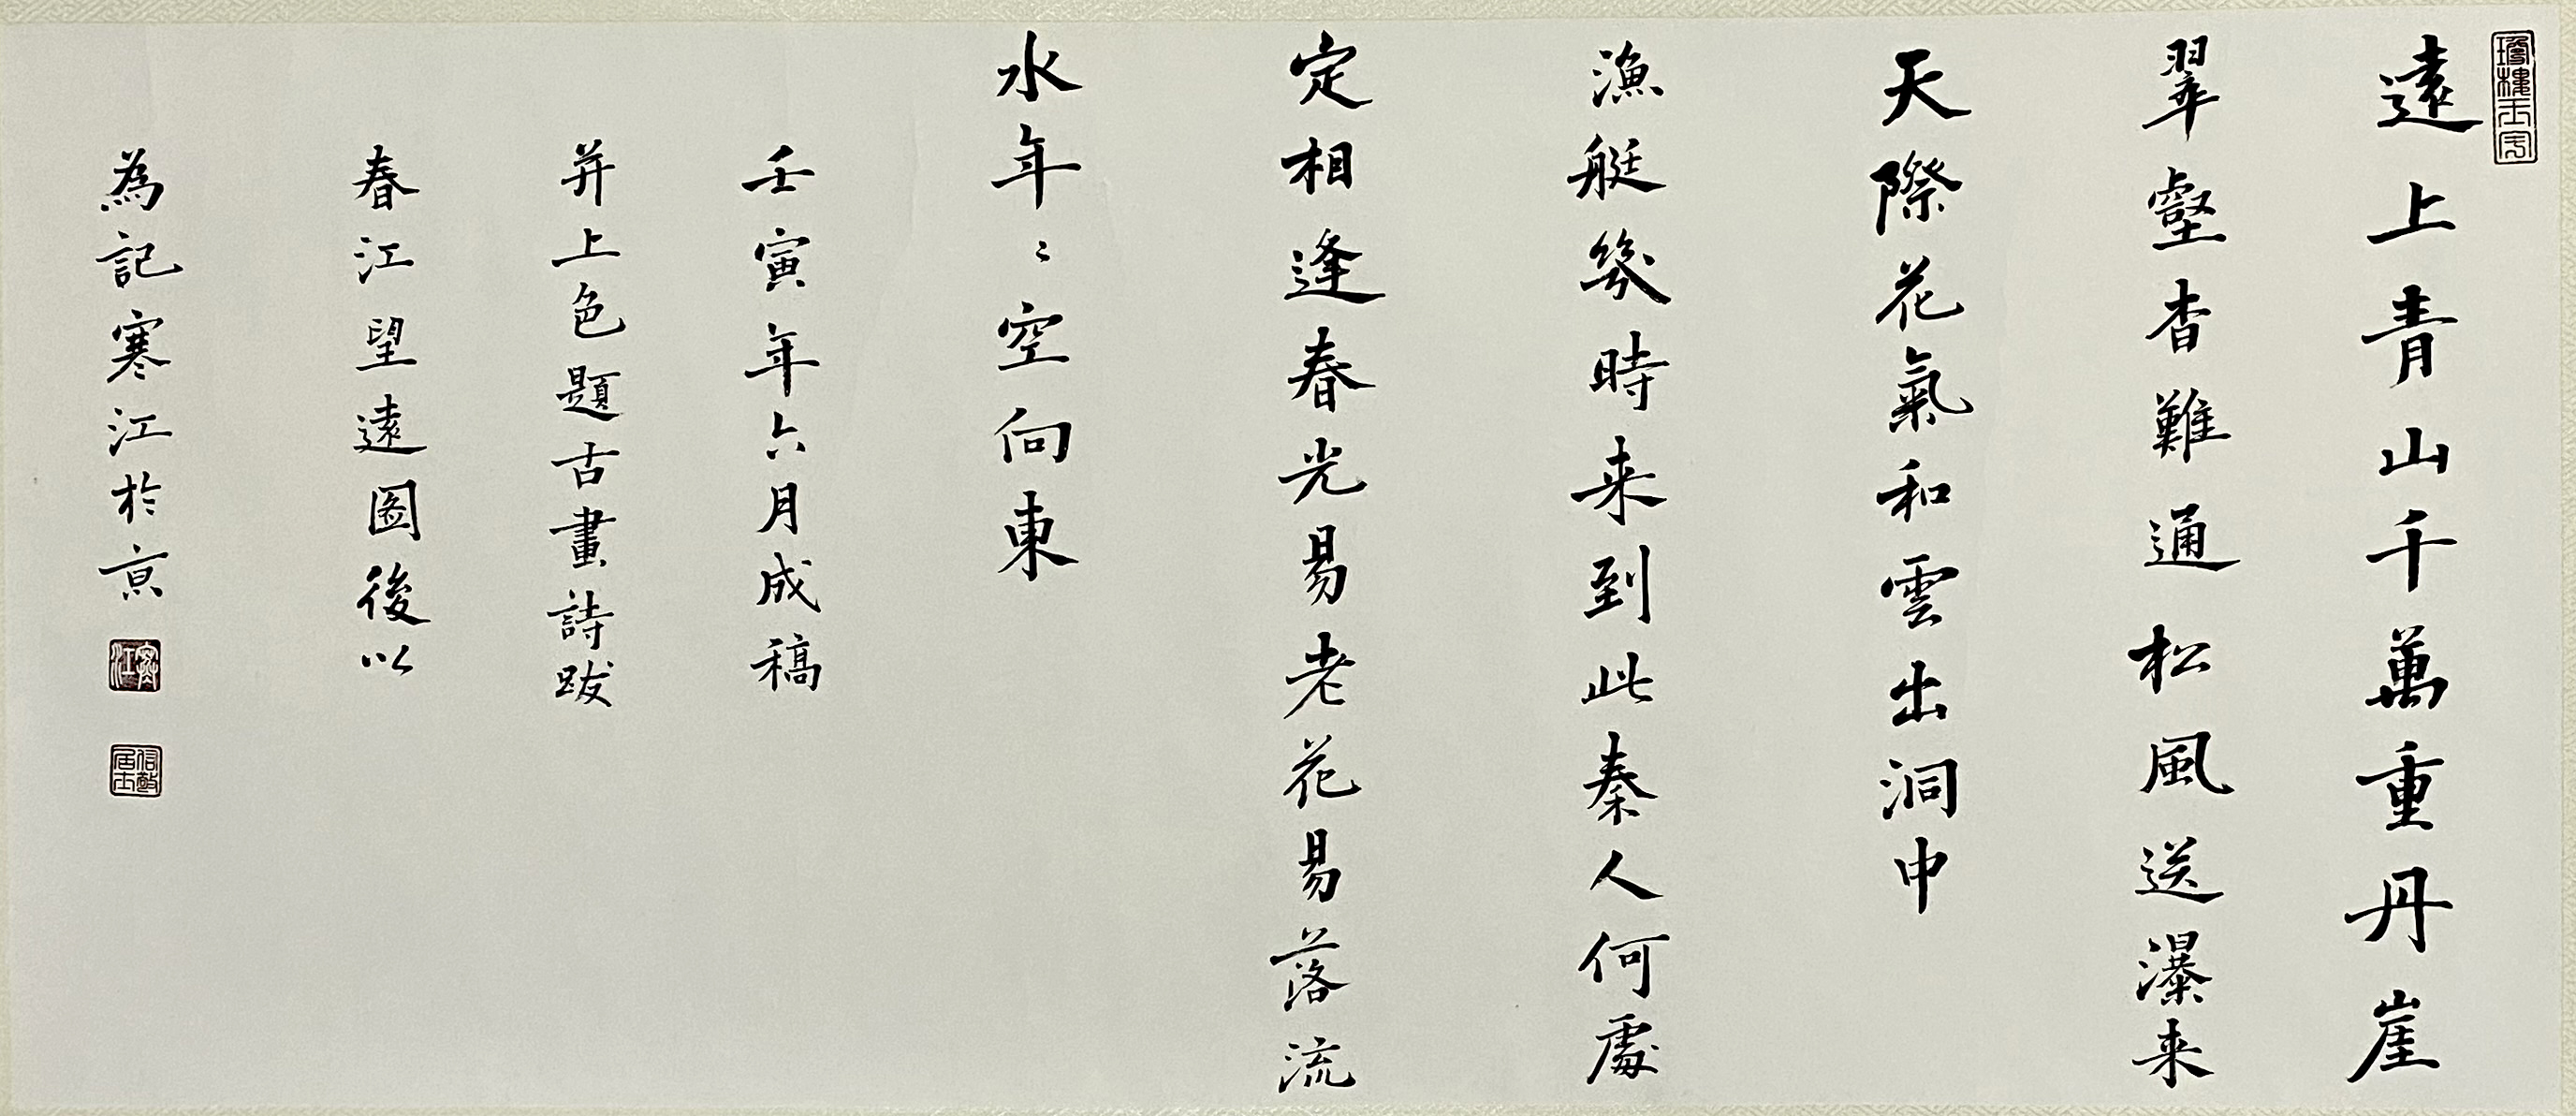 遠上青山千萬重丹崖
翠壑杳難通松風送瀑来
天際花氣和雲出洞中
漁艇幾時来到此秦人何處
定相逢春光易老花易落流
水年〻空向東
壬寅年六月成稿
并上色題古畫詩跋
春江望遠图後以
為記寒江於京
寒江
居士